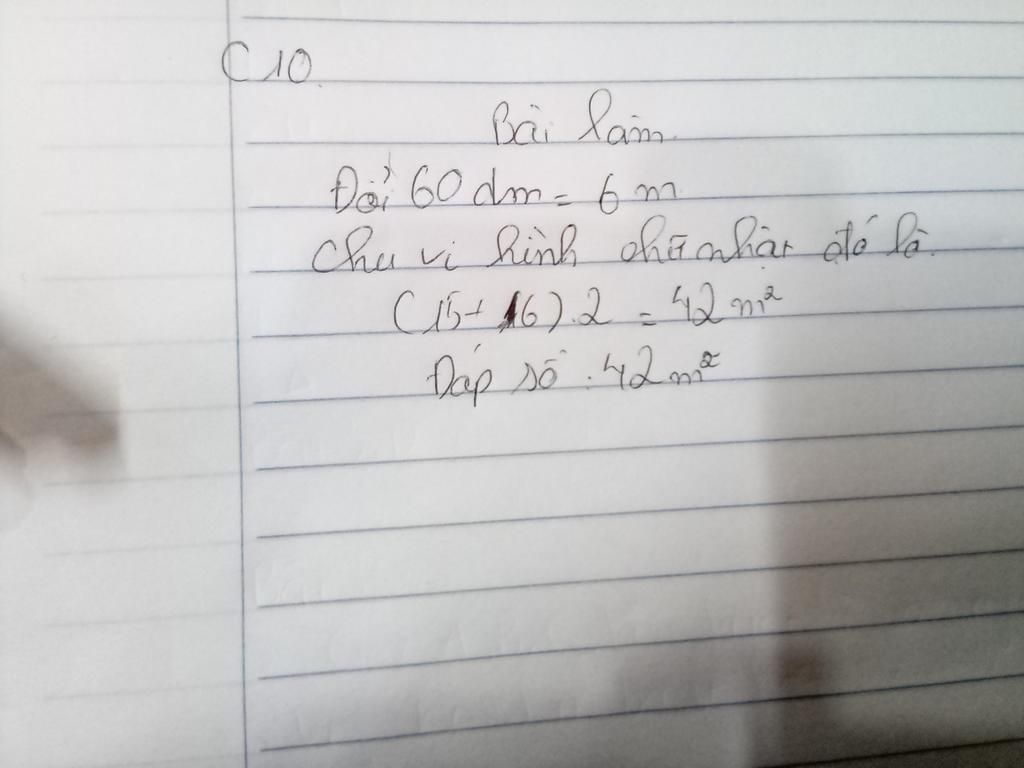 C10.
Bài làm.
Đổi 60 dm = 6 m
Chu vi hình chữ nhật đó là.
(15+ 6).2 = 42 m²
Đáp số : 42 m²